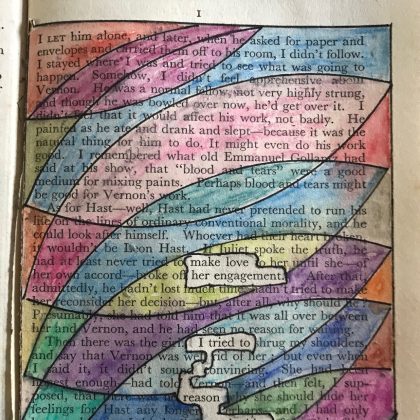 I
I LET him alone, and later, when he asked for paper and
envelopes and carried them off to his room, I didn't follow.
I stayed where I was and tried to see what was going to
happen. Somehow, I didn't feel apprehensive about
Vernon. He was a normal fellow, not very highly strung,
and though he was bowled over now, he'd get over it. I
didn't feel that it would affect his work, not badly. He
painted as he ate and drank and slept—because it was the
natural thing for him to do. It might even do his work
good. I remembered what old Emmanuel had
said at his show, that "blood and tears" were a good
medium for mixing paints. Perhaps blood and tears might
be good for Vernon's work.
As for Hast—well, Hast had never pretended to run his
life on the lines of ordinary conventional morality, and he
could look after himself. Whoever
it wouldn't Hast. Juliet spoke the truth, he
had at least never tried to make love to her until she—of
her own accord—spoke of her engagement. After that,
admittedly, he hadn't lost much time hadn't tried to make
her reconsider her decision—but, after all, why should he?
Presumably she had told him that it was all over between
her and Vernon, and he had seen no reason for waiting.
Then there was the girl. I tried to shrug my shoulders,
and say that Vernon was well of her, but even when
I said it, it didn't sound convincing. She had
honest enough—had and then felt, sup-
posed, that there was reason she should hide her
feelings for Hast any longer. Perhaps had only